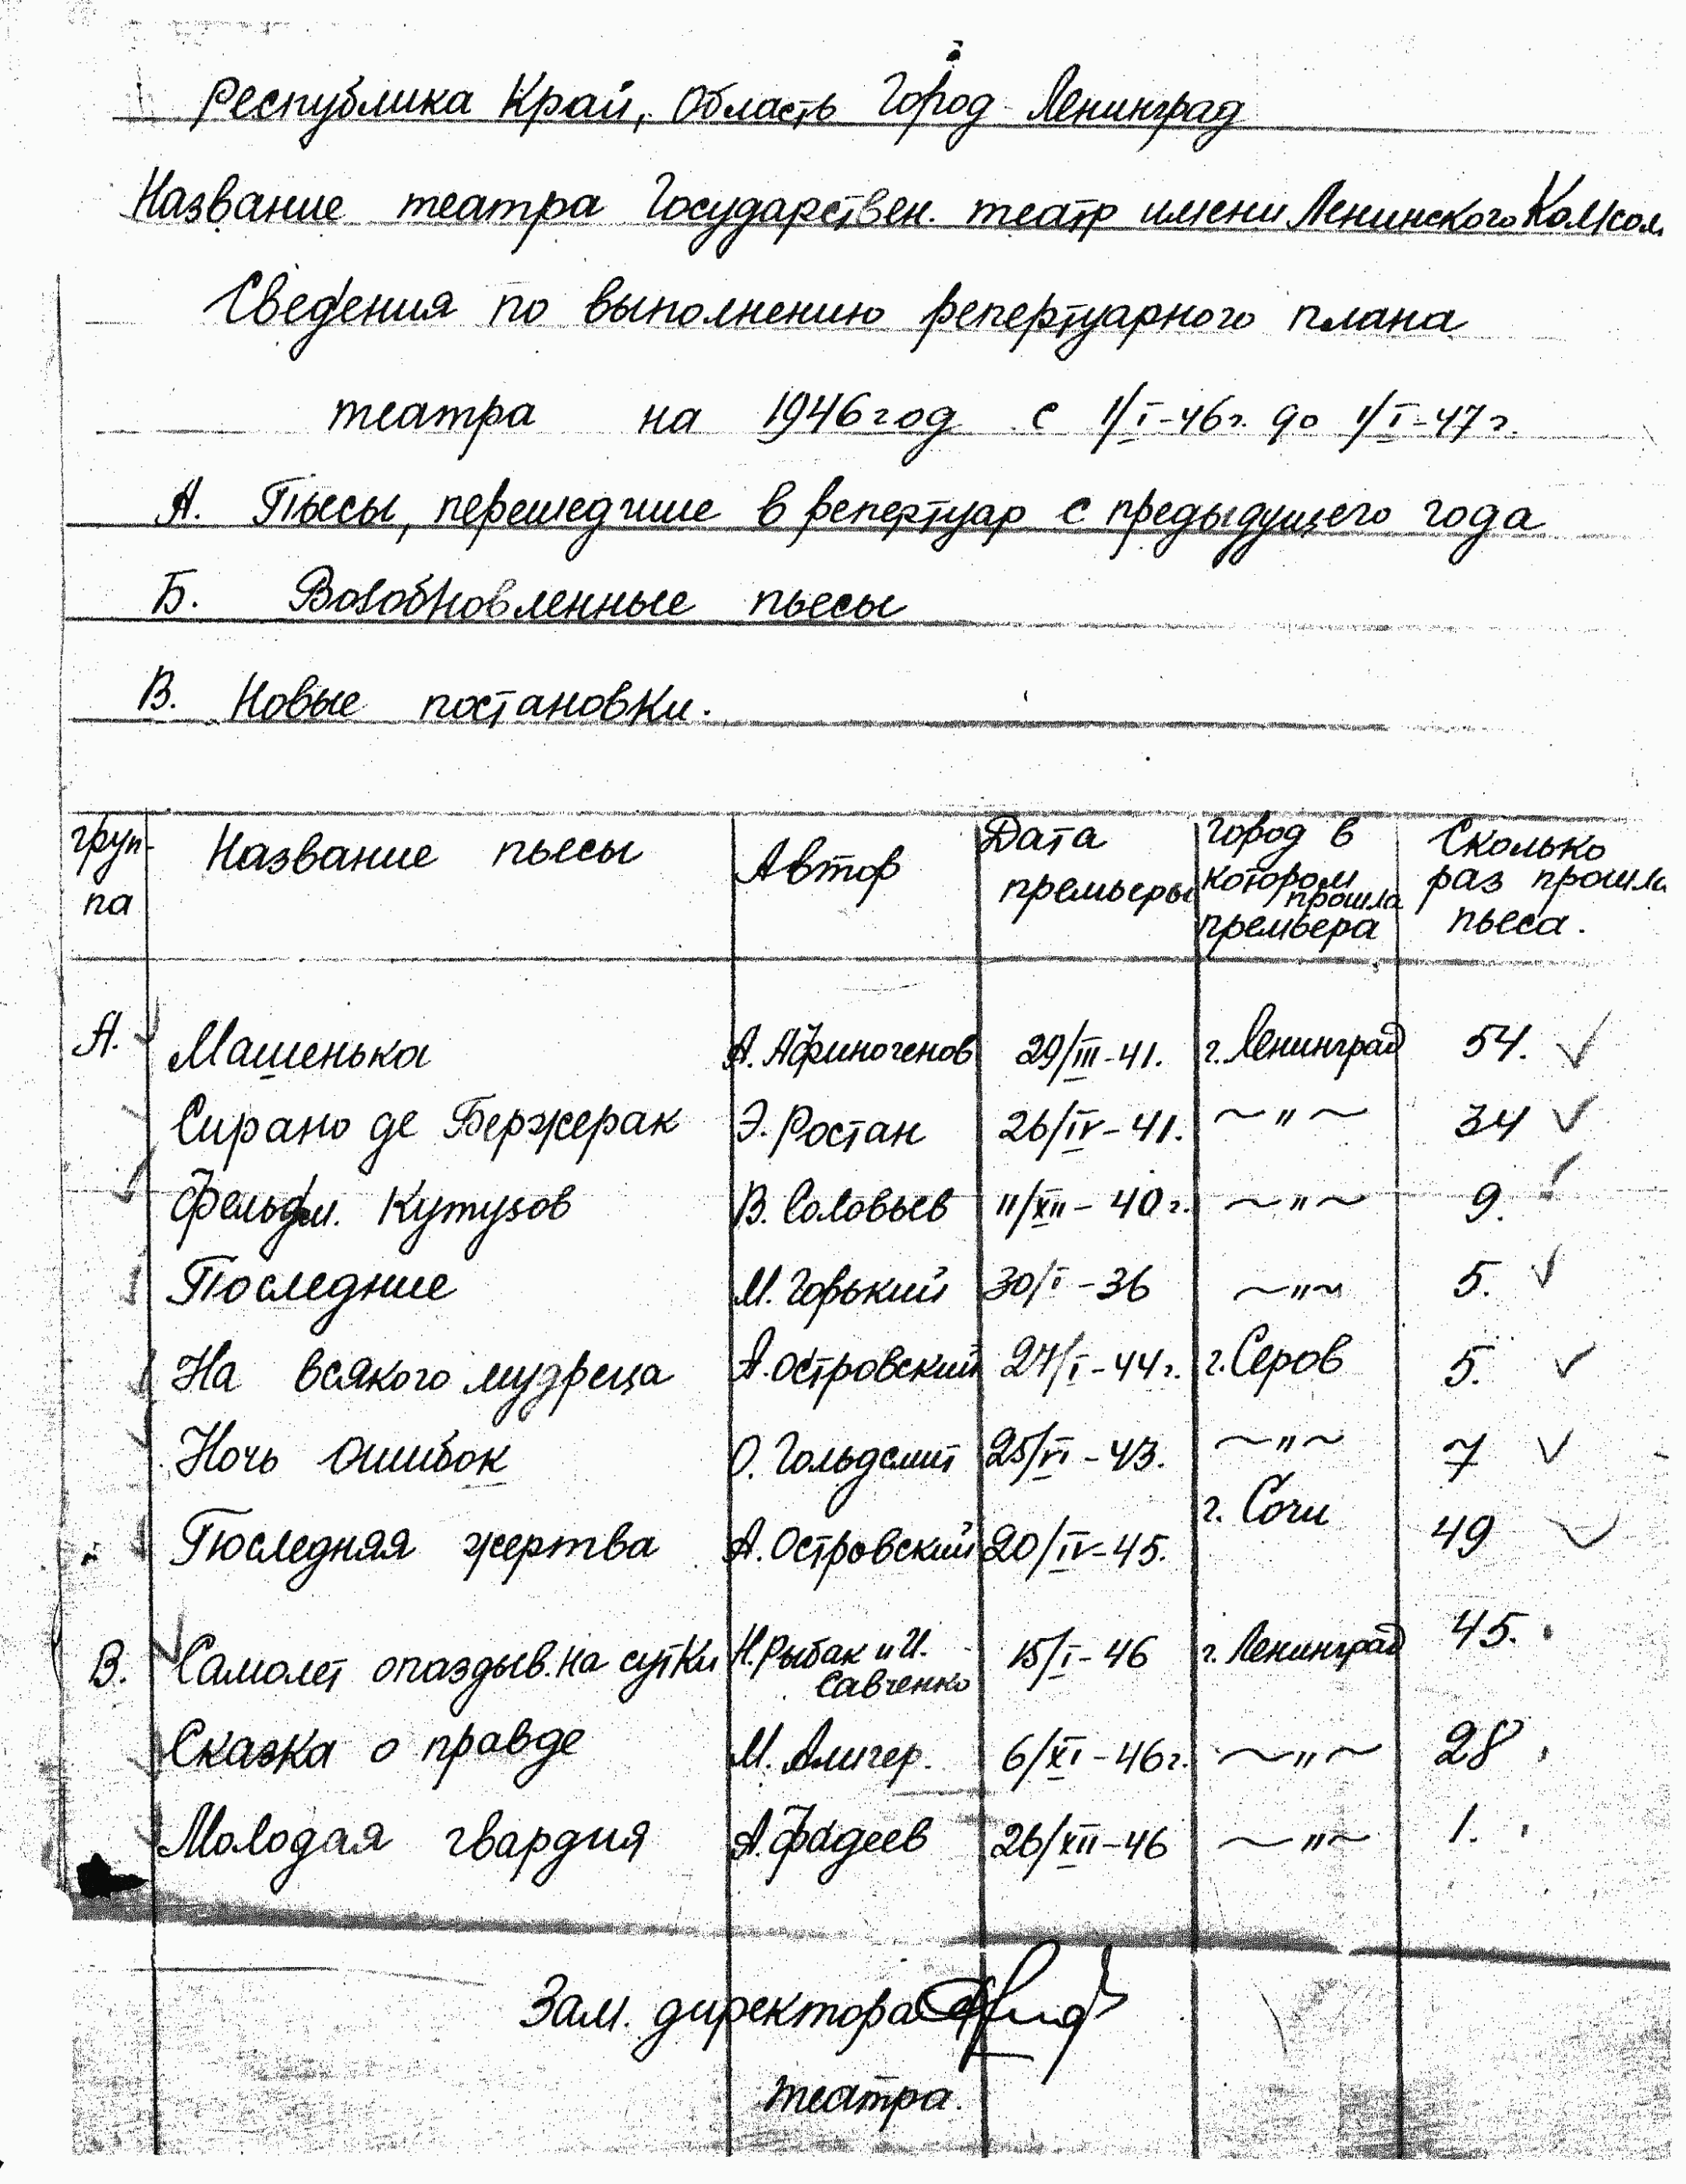 Республика Край, Область Город Ленинград
Название театра Государствен. театр имени Ленинского Комсом.
Сведения по выполнению репертуарного плана
театра на 1946 год с 1/I-46г. до 1/I-47г.
А. Пьесы, перешедшие в репертуар с предыдущего года
Б. Возобновленные пьесы
В. Новые постановки.
груп-па Название пьесы Автор Дата премьеры Город в котором прошла премьера Сколько раз прошла пьеса.
А. Машенька А. Афиногенов 29/III-41. г. Ленинград 54.
Сирано де Бержерак Э. Ростан 26/IV-41. ~"~ 34
Фельдм. Кутузов В. Соловьев 11/XII-40г. ~"~ 9.
Последние М. Горький 30/I-36 ~"~ 5.
На всякого мудреца А. Островский 27/I-44г. г. Серов 5.
Ночь ошибок О. Гольдсмит 25/VI-43. ~"~ 7
Последняя жертва А. Островский 20/IV-45. г. Сочи 49
В. Самолет опаздыв. на сутки Н. Рыбак и И. Савченко 15/I-46 г. Ленинград 45.
Сказка о правде М. Алигер. 6/XI-46г. ~"~ 28
Молодая гвардия А. Фадеев 26/XII-46 ~"~ 1.
Зам. директора
театра.